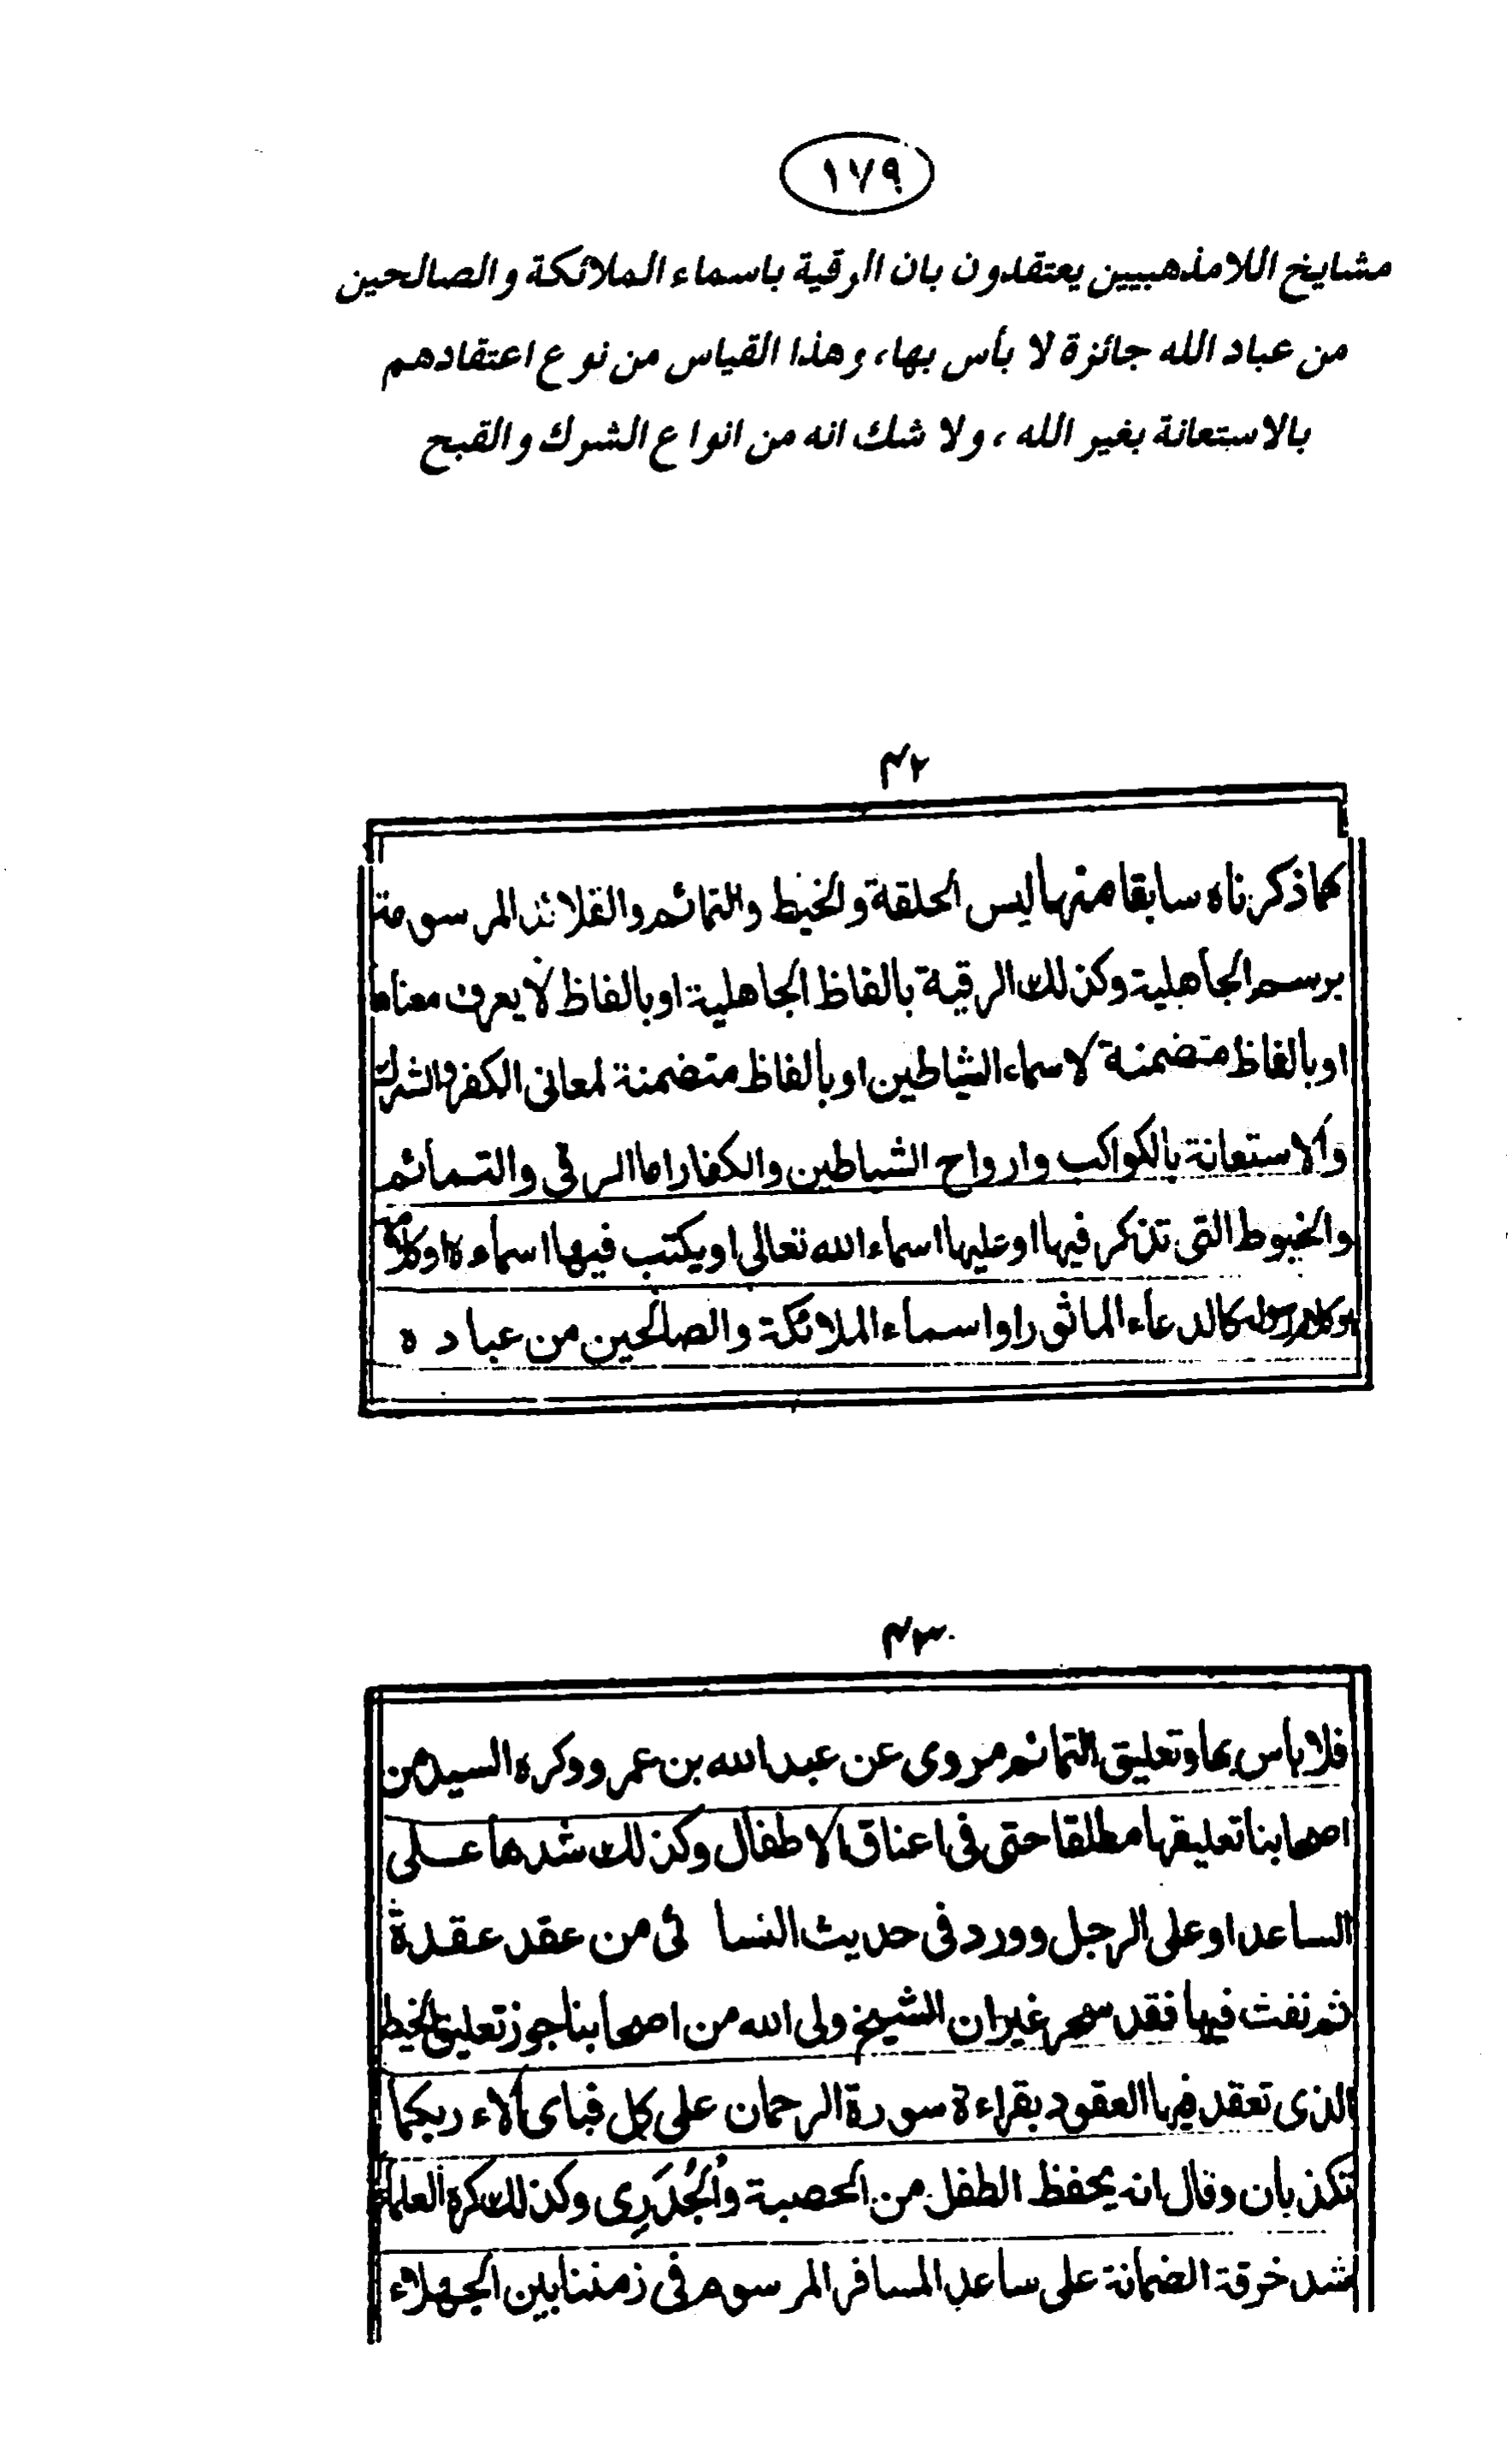 ١٧٩
مشايخ اللامذهبيين يعتقدون بان الرقية باسماء الملائكة والصالحين
من عباد الله جائزة لا بأس بها، وهذا القياس من نوع اعتقادهم
بالاستعانة بغير الله ، ولا شك انه من انواع الشرك والقبح
۴۲
كما ذكرناه سابقا منها لبس الحلقة والخيط والتمائم والقلائد المرسومة
برسم الجاهلية وكذلك الرقية بالفاظ الجاهلية او بالفاظ لا يعرف معناها
او بالفاظ متضمنة لاسماء الشياطين او بالفاظ متضمنة لمعانى الكفر والشرك
والاستعانة بالكواكب وارواح الشياطين والكفار اما الرقى والتمائم
والخيوط التى تذكر فيها او عليها اسماء الله تعالى او يكتب فيها اسماءه او كلامه
او كلام رسوله كالدعاء الماثور او اسماء الملائكة والصالحين من عباده
۴۳
فلا باس بها وتعليق التمائم مروى عن عبد الله بن عمرو وكره السيد من
اصحابنا تعليقها مطلقا حتى فى اعناق الاطفال وكذلك شدها على
الساعد او على الرجل وورد فى حديث النسائى من عقد عقدة
ثم نفث فيها فقد سحر غير ان الشيخ ولى الله من اصحابنا جوز تعليق الخيط
الذى تعقد فيها العقود بقراءة سورة الرحمان على كل فباى آلاء ربكما
تكذبان وقال انه يحفظ الطفل من الحصبة والجُدَرِى وكذلك كره العلماء
شد خرقة الضمانة على ساعد المسافر المرسوم فى زمننا بين الجهلاء